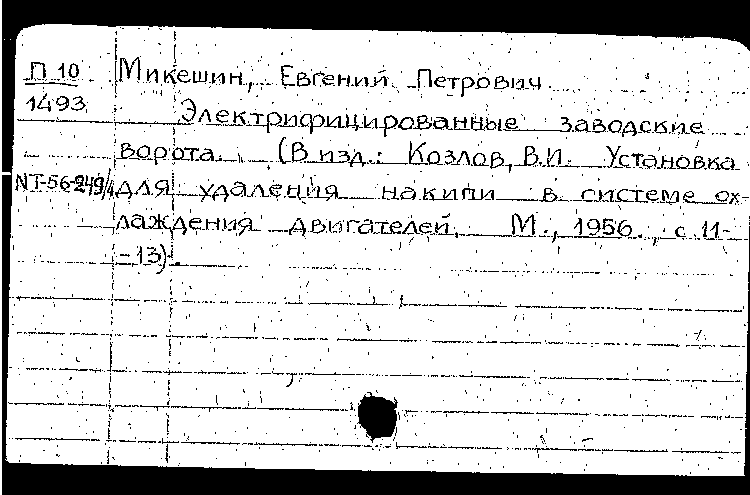 П 10 Микешин, Евгений Петрович
1493 Электрифицированные заводские
ворота. (В изд.: Козлов, В.И. Установка
NT-56-249/4 для удаления накипи в системе ох-
лаждения двигателей. М., 1956., с. 11-
-13).